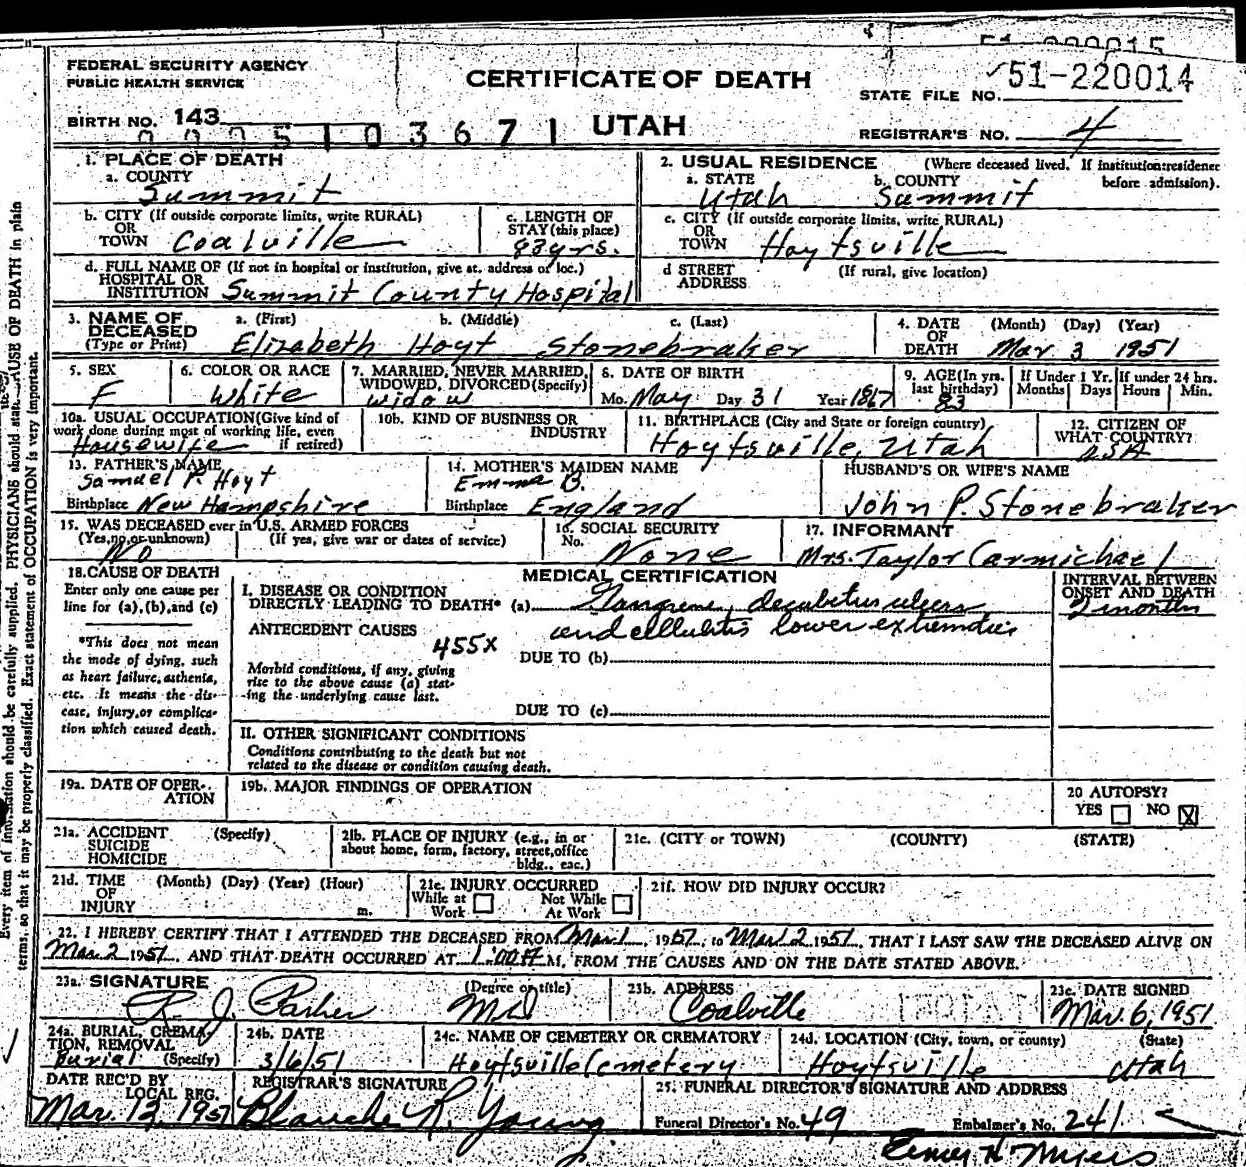 51-220014
FEDERAL SECURITY AGENCY
PUBLIC HEALTH SERVICE
CERTIFICATE OF DEATH
STATE FILE NO.
BIRTH NO. 143
UTAH
REGISTRAR'S NO. 4
1. PLACE OF DEATH
a. COUNTY
Summit
2. USUAL RESIDENCE (Where deceased lived. If institution:residence before admission).
a. STATE Utah b. COUNTY Summit
b. CITY (If outside corporate limits, write RURAL)
OR
TOWN Coalville
c. LENGTH OF
STAY (this place)
83 yrs.
c. CITY (If outside corporate limits, write RURAL)
OR
TOWN Hoytsville
d. FULL NAME OF (If not in hospital or institution, give st. address or loc.)
HOSPITAL OR
INSTITUTION Summit County Hospital
d STREET (If rural, give location)
ADDRESS
3. NAME OF DECEASED (Type or Print)
a. (First) b. (Middle) c. (Last)
Elizabeth Hoyt Stonebraker
4. DATE OF DEATH (Month) (Day) (Year)
Mar 3 1951
5. SEX
F
6. COLOR OR RACE
White
7. MARRIED, NEVER MARRIED,
WIDOWED, DIVORCED (Specify)
widow
8. DATE OF BIRTH
Mo. May Day 31 Year 1867
9. AGE (In yrs. last birthday)
83
If Under 1 Yr. Months Days
If under 24 hrs. Hours Min.
10a. USUAL OCCUPATION (Give kind of
work done during most of working life, even
if retired)
Housewife
10b. KIND OF BUSINESS OR
INDUSTRY
11. BIRTHPLACE (City and State or foreign country)
Hoytsville, Utah
12. CITIZEN OF
WHAT COUNTRY?
USA
13. FATHER'S NAME
Samuel P. Hoyt
Birthplace New Hampshire
14. MOTHER'S MAIDEN NAME
Emma B.
Birthplace England
HUSBAND'S OR WIFE'S NAME
John P. Stonebraker
15. WAS DECEASED ever in U.S. ARMED FORCES
(Yes, no, or unknown) (If yes, give war or dates of service)
No
16. SOCIAL SECURITY
No. None
17. INFORMANT
Mrs. Taylor Carmichael
18. CAUSE OF DEATH
Enter only one cause per
line for (a), (b), and (c)
*This does not mean
the mode of dying, such
as heart failure, asthenia,
etc. It means the dis-
ease, injury, or complica-
tion which caused death.
MEDICAL CERTIFICATION
INTERVAL BETWEEN
ONSET AND DEATH
2 months
I. DISEASE OR CONDITION
DIRECTLY LEADING TO DEATH* (a) Gangrene, decubitus ulcers
and cellulitis lower extremities
ANTECEDENT CAUSES
455X
DUE TO (b)
Morbid conditions, if any, giving
rise to the above cause (a) stat-
ing the underlying cause last.
DUE TO (c)
II. OTHER SIGNIFICANT CONDITIONS
Conditions contributing to the death but not
related to the disease or condition causing death.
19a. DATE OF OPER-
ATION
19b. MAJOR FINDINGS OF OPERATION
20 AUTOPSY?
YES NO X
21a. ACCIDENT (Specify)
SUICIDE
HOMICIDE
21b. PLACE OF INJURY (e.g., in or
about home, form, factory, street, office
bldg., eac.)
21c. (CITY or TOWN) (COUNTY) (STATE)
21d. TIME (Month) (Day) (Year) (Hour)
OF
INJURY m.
21e. INJURY OCCURRED
While at Work Not While At Work
21f. HOW DID INJURY OCCUR?
22. I HEREBY CERTIFY THAT I ATTENDED THE DECEASED FROM Mar. 1, 1951, to Mar. 2 1951, THAT I LAST SAW THE DECEASED ALIVE ON
Mar. 2 1951, AND THAT DEATH OCCURRED AT 1:00 A M, FROM THE CAUSES AND ON THE DATE STATED ABOVE.
23a. SIGNATURE (Degree or title)
R. J. Parker MD
23b. ADDRESS
Coalville
23c. DATE SIGNED
Mar. 6, 1951
24a. BURIAL, CREMA-
TION, REMOVAL
(Specify)
Burial
24b. DATE
3/6/51
24c. NAME OF CEMETERY OR CREMATORY
Hoytsville Cemetery
24d. LOCATION (City, town, or county) (State)
Hoytsville Utah
DATE REC'D BY
LOCAL REG.
Mar. 13, 1951
REGISTRAR'S SIGNATURE
Blanche R. Young
25. FUNERAL DIRECTOR'S SIGNATURE AND ADDRESS
Funeral Director's No. 49 Embalmer's No. 241
Myers
Every item of information should be carefully supplied. PHYSICIANS should state CAUSE OF DEATH in plain
terms, so that it may be properly classified. Exact statement of OCCUPATION is very important.